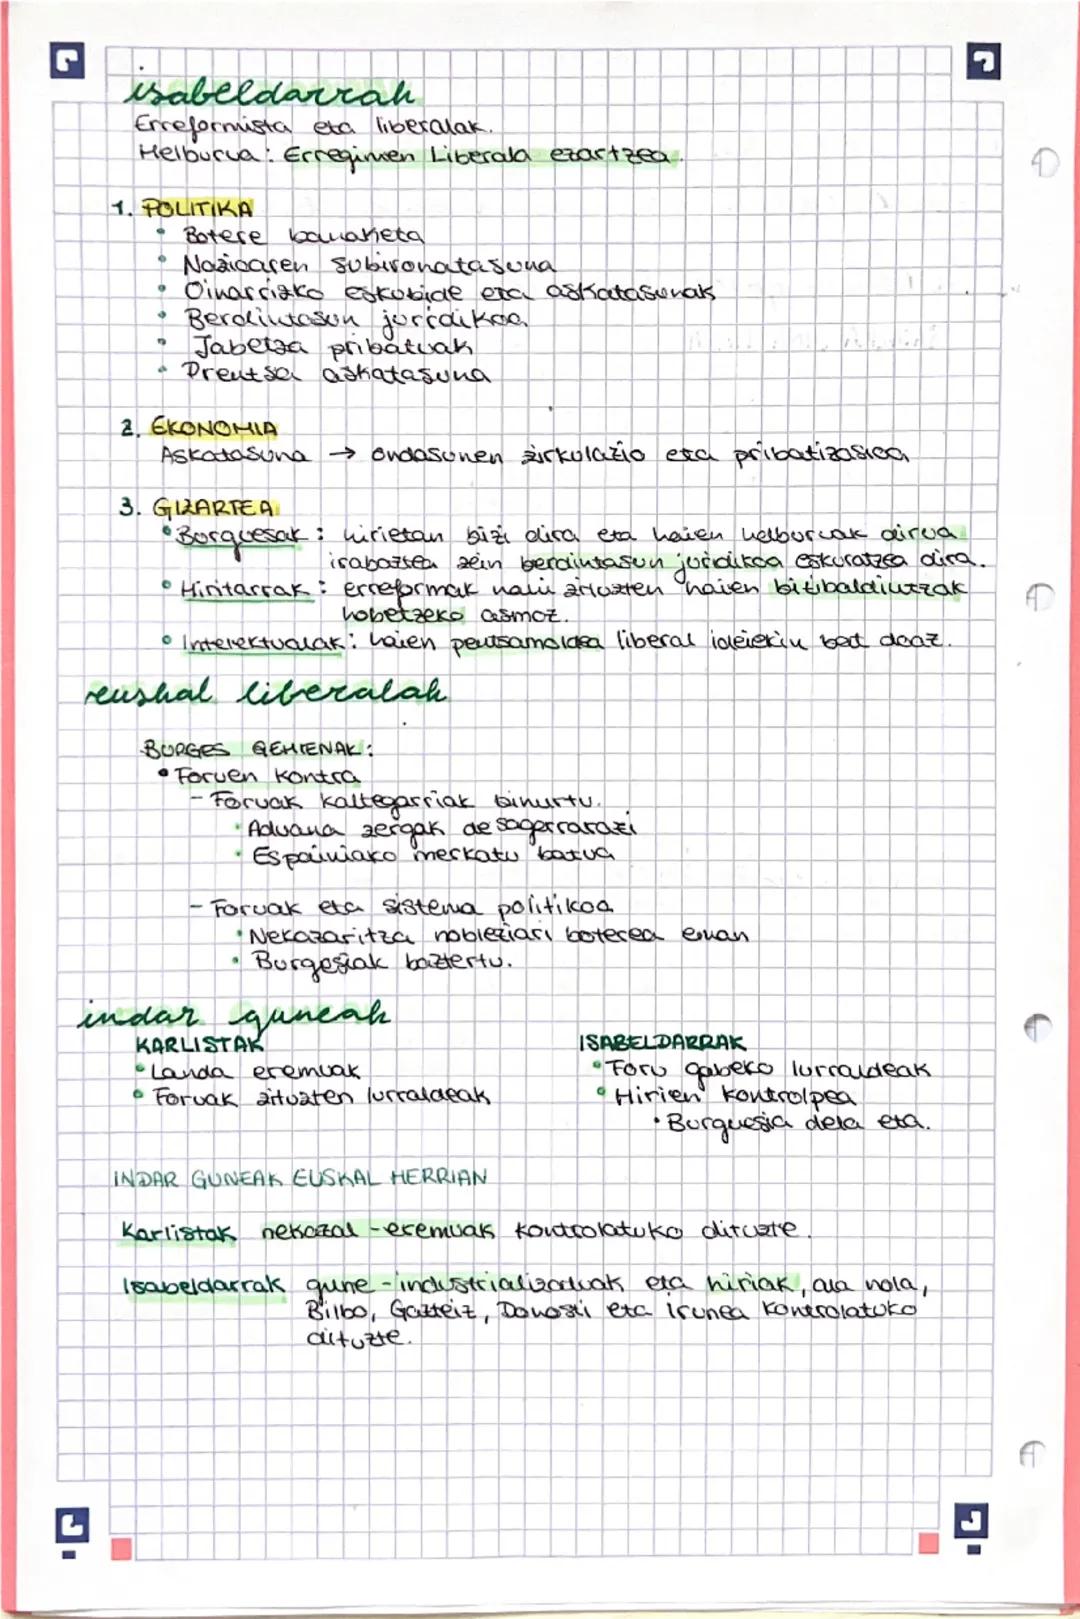 isabeldarrak
Erreformista eta liberalak.
Helburua: Erregimen Liberala ezartzea.
1. POLITIKA
• Botere banaketa
• Nazioaren subironatasuna
• Oinarrizko eskubide eta askatasunak
• Berdintasun juridikoa
• Jabetza pribatuak
• Prentsa askatasuna
2. EKONOMIA
Askatasuna → ondasunen zirkulazio eta pribatizazioa
3. GIZARTEA
• Borguesak: hirietan bizi dira eta haien helburuak dirua
irabaztea zein berdintasun juridikoa eskuratzea dira.
• Hiritarrak: erreformak nahi zituzten haien bitibaldintzak
hobetzeko asmoz.
• Interektualak: haien pentsamoldea liberal ideiekin bat doaz.
euskal liberalak
BURGES GEHIENAK:
• Foruen kontra
- Foruak kaltegarriak bihurtu.
• Aduana zergak desagerrarazi
• Espainiako merkatu batua
- Foruak eta sistema politikoa
• Nekazaritza nobleziari boterea eman
• Burgesiak baztertu.
indar guneak
KARLISTAK
• Landa eremuak
• Foruak zituzten lurraldeak
ISABELDARRAK
• Foru gabeko lurraldeak
• Hirien kontrolpea
• Burguesia dela eta.
INDAR GUNEAK EUSKAL HERRIAN
Karlistak nekazal-eremuak kontrolatuko dituzte.
Isabeldarrak gune-industrializaduak eta hiriak, ala nola,
Bilbo, Gazteiz, Donosti eta Irunea kontrolatuko
dituzte.